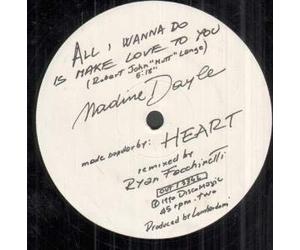 ALL I WANNA DO
IS MAKE LOVE TO YOU
(Robert John "Mutt" Lange)
5:18"
Nadine Dayle
made popular by: HEART
remixed by
Ryan Facchinelli
OUT/3346
© 1990 DiscoMagic
45 rpm - TWO
Produced by Lombardoni